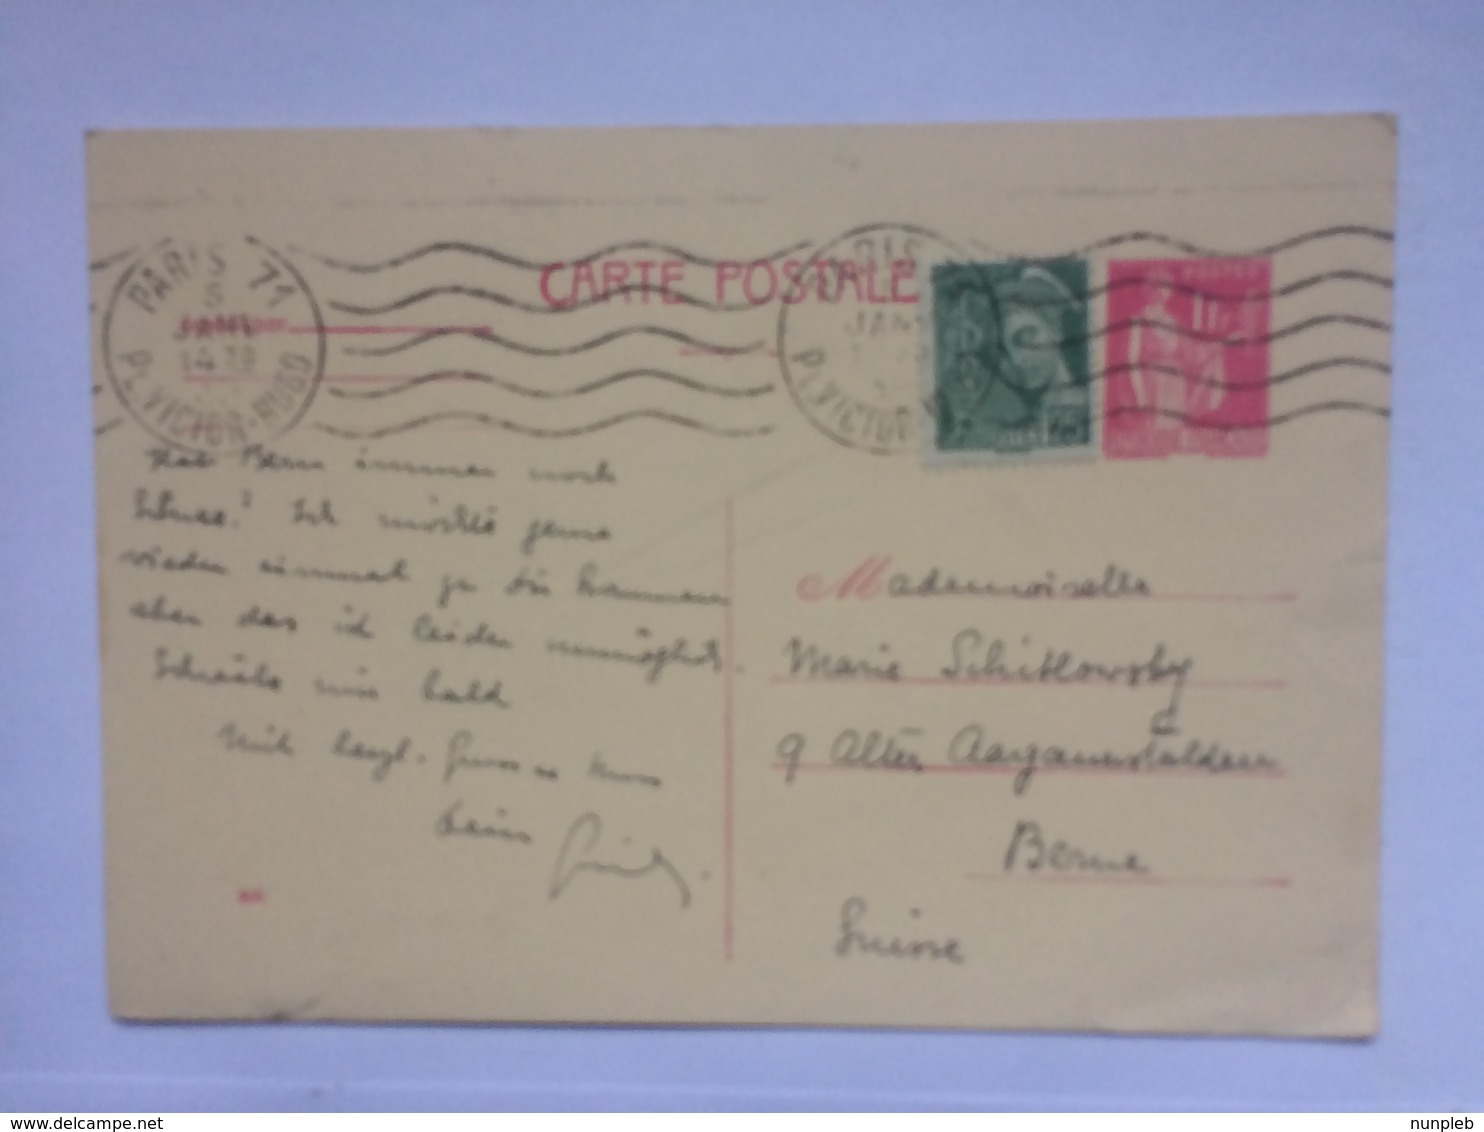 PARIS 71
PL. VICTOR-HUGO
CARTE POSTALE
POSTES
1F
Hat Bern immer noch
Schnee? Ich möchte gerne
wieder einmal zu Dir kommen
aber das ist leider unmöglich.
Schreibe mir bald
Mit herzl. Gruss u Kuss
Dein
Mademoiselle
Marie Schitlowsky
9 Alter Aargauerstalden
Berne
Suisse
www.delcampe.net
nunpleb